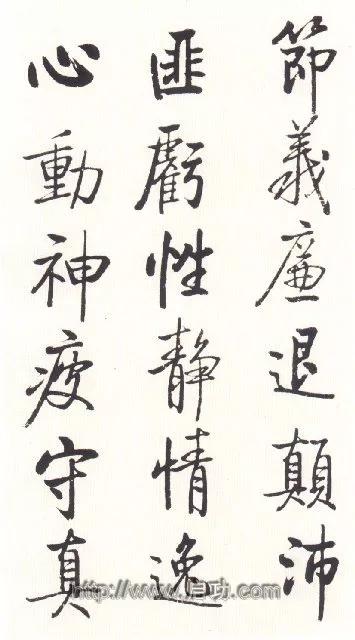 節義廉退顛沛
匪虧性静情逸
心動神疲守真
http://www.启功.com